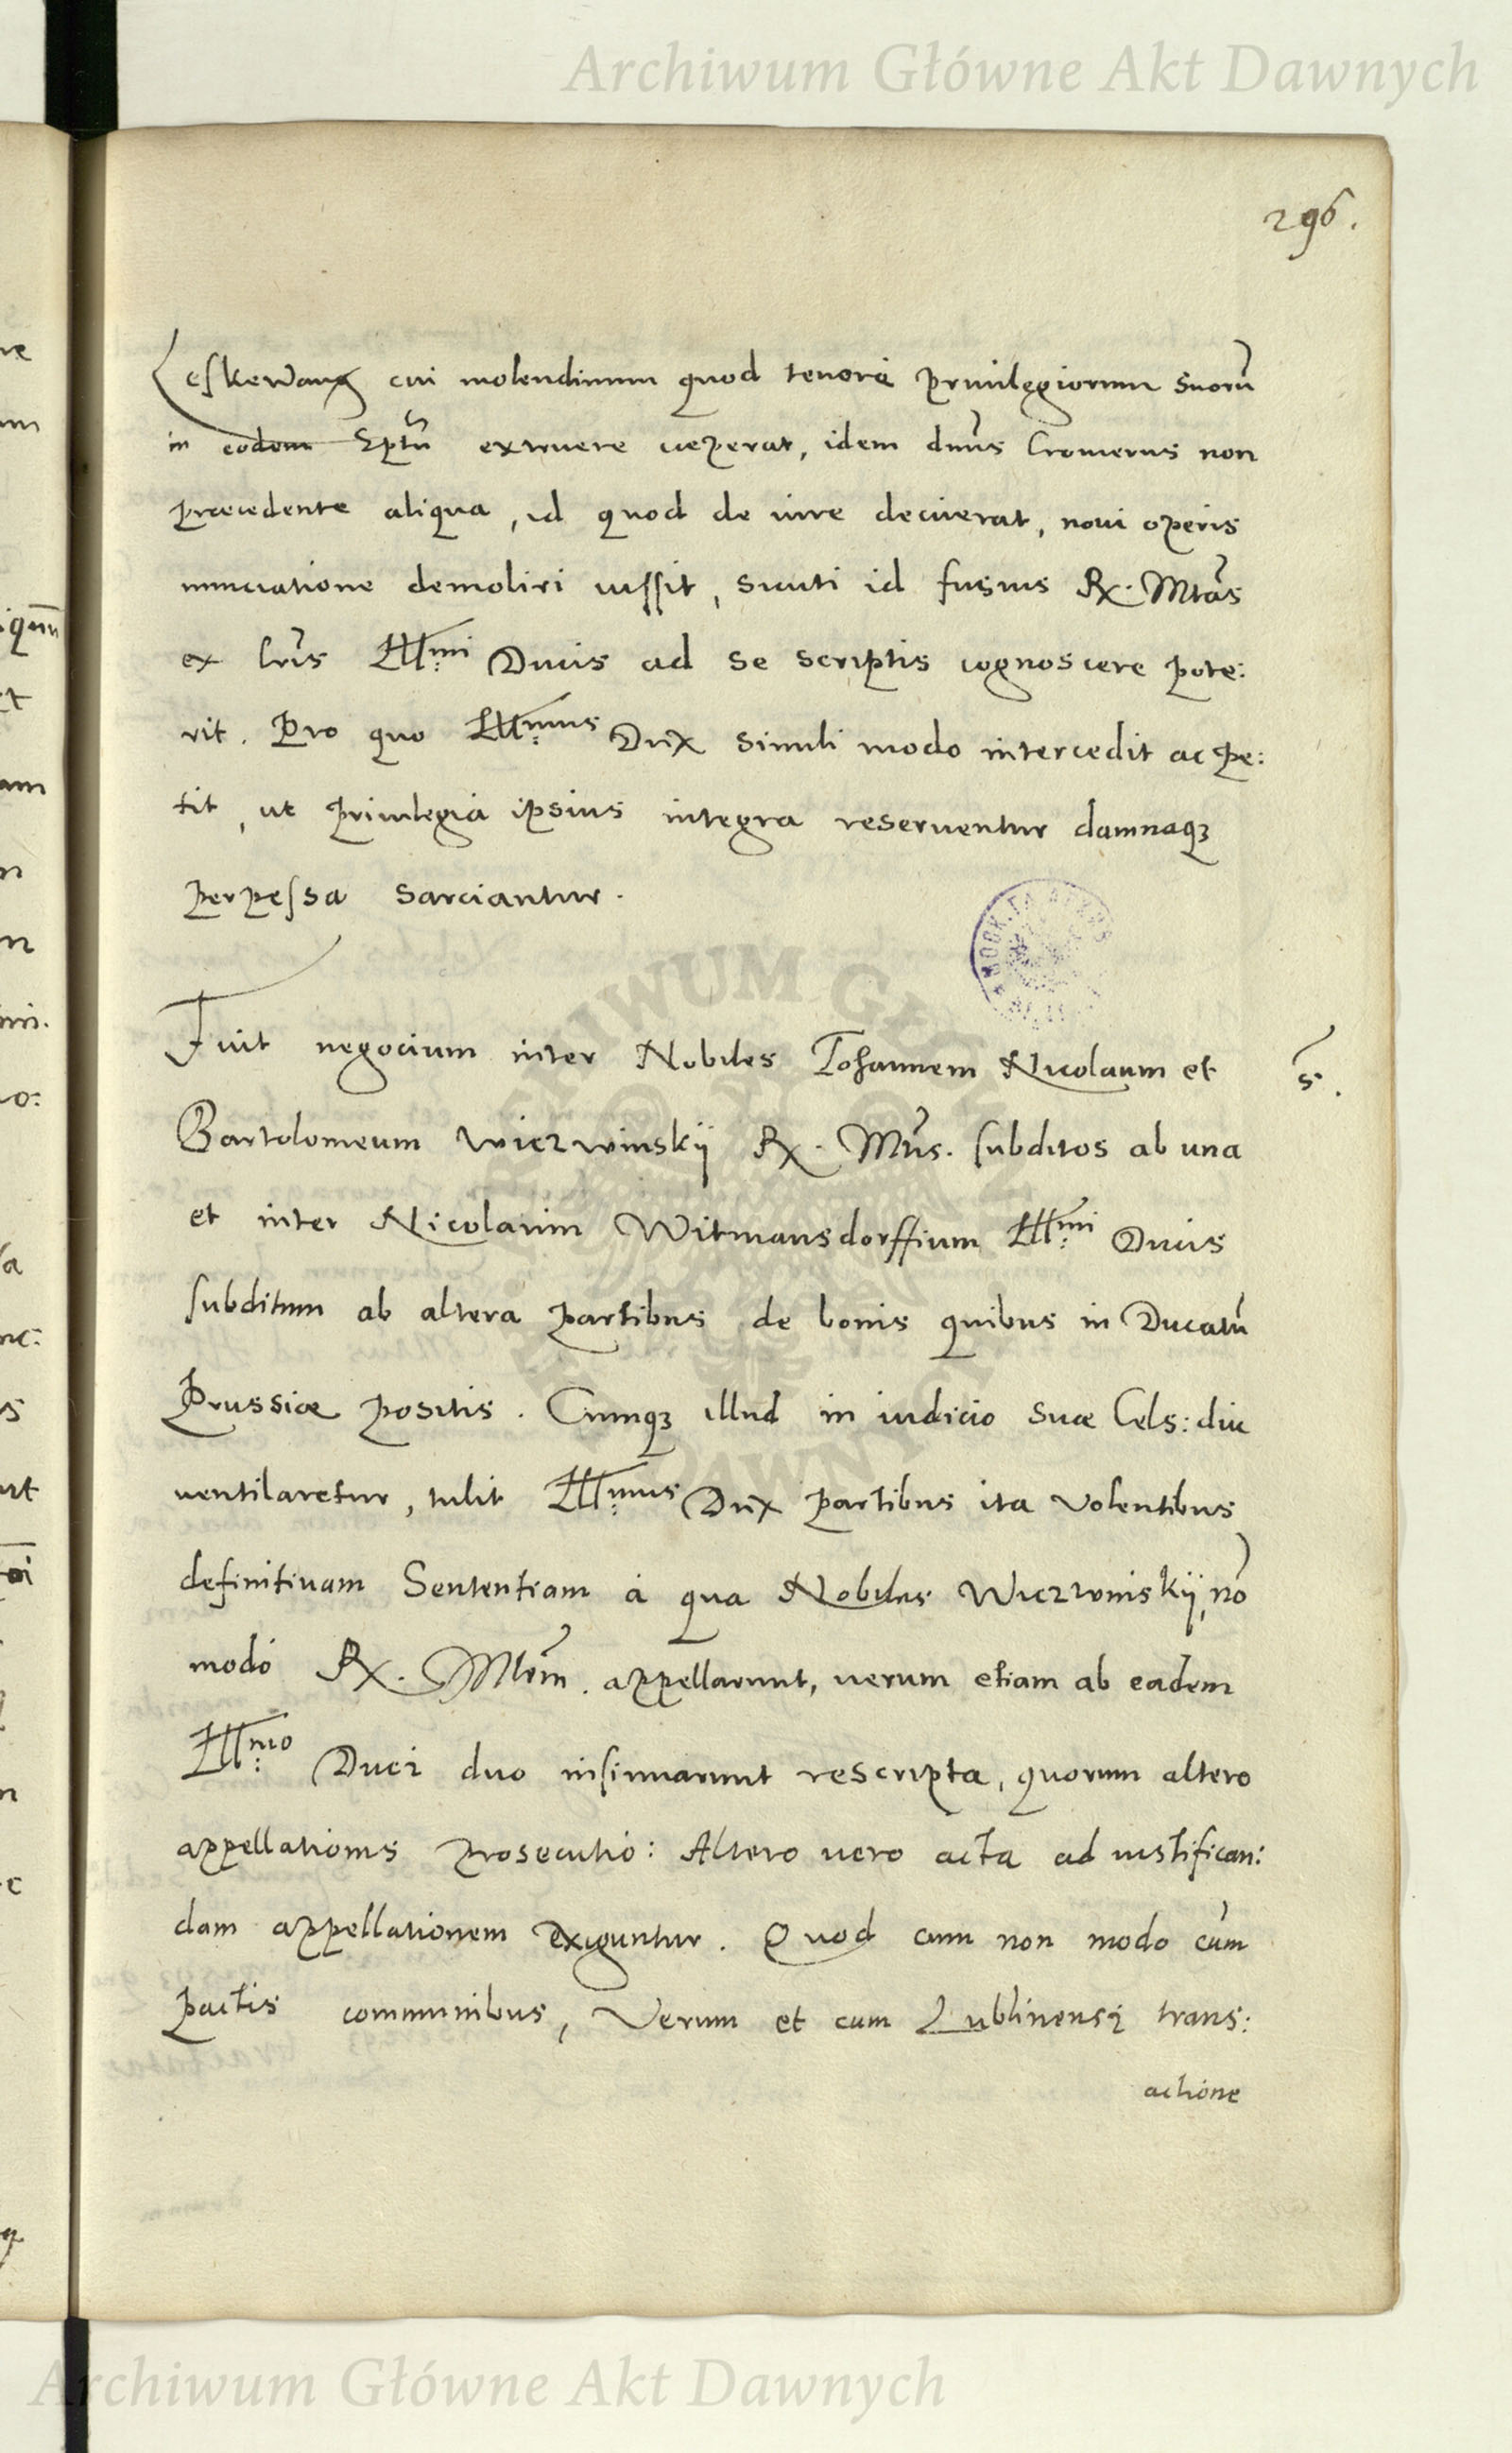 Archiwum Główne Akt Dawnych
296.
Leskewang cui molendinum quod tenore priuilegiorum suorũ
in eodem extruere ceperat, idem dñus Cromerus non
præcedente aliqua, id quod de iure decuerat, noui operis
nunciatione demoliri iussit, sicuti id fusius R. Mtas
ex lris Illmi Ducis ad se scriptis cognoscere pote:
rit. Pro quo Illmus Dux simili modo intercedit ac pe:
tit, ut priuilegia ipsius integra reseruentur damnaqꝫ
perpessa sarciantur.
Fuit negocium inter Nobiles Johannem Nicolaum et
5.
Bartolomeum Wierzwinskij R. Mtis. subditos ab una
et inter Nicolaum Witmansdorffium Illmi Ducis
subditum ab altera partibus de bonis quibus in Ducatũ
Prussiæ positis. Cumqꝫ illud in iudicio suæ Cels: diu
uentilaretur, tulit Illmus Dux partibus ita volentibus
definitiuam Sententiam à qua Nobiles Wierzwinskij, nõ
modò R. Mtem. appellarunt, uerum etiam ab eadem
Illmo Duci duo insinuarunt rescripta, quorum altero
appellationis prosecutio: Altero uero acta ad iustifican:
dam appellationem exiguntur. Quod cum non modo cum
pactis communibus, Verum et cum Lublinensi trans:
actione
Archiwum Główne Akt Dawnych